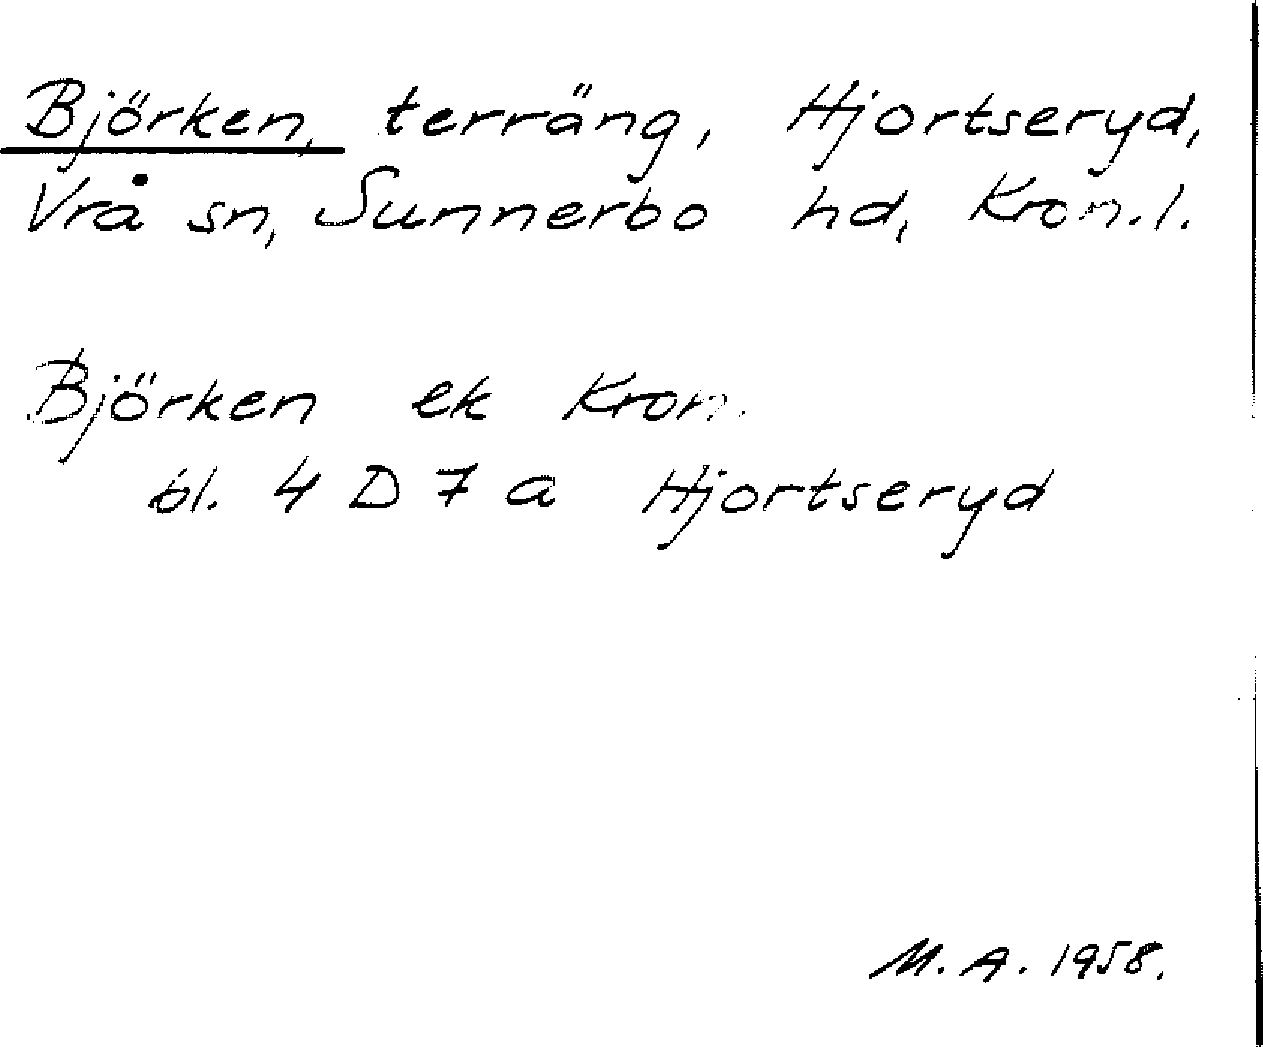 Björken, terräng, Hjortseryd,
Vrå sn, Sunnerbo hd, Kron.l.
Björken ek Kron.
bl. 4 D 7 a Hjortseryd
M. A. 1958.